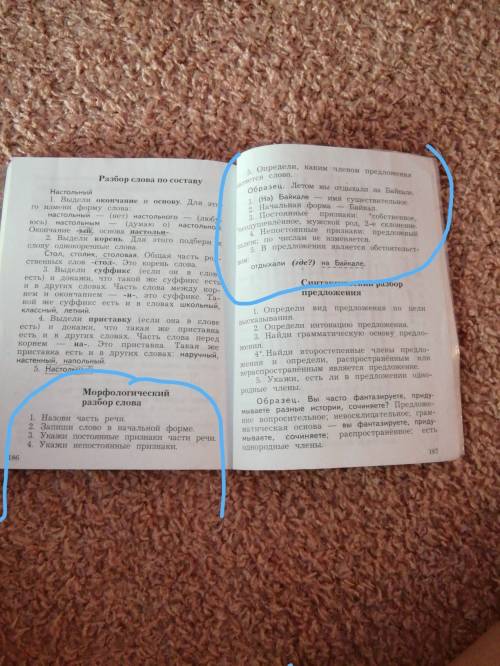 Разбор слова по составу
Настольный
1. Выдели окончание и основу. Для это-
го измени форму слова:
настольный — (нет) настольного — (любу-
юсь) настольным — (думаю о) настольно
Окончание -ый, основа настольн-.
2. Выдели корень. Для этого подбери к
слову однокоренные слова.
Стол, столик, столовая. Общая часть род-
ственных слов -стол-. Это корень слова.
3. Выдели суффикс (если он в слове
есть) и докажи, что такой же суффикс есть
и в других словах. Часть слова между кор-
нем и окончанием — -н-, это суффикс. Та-
кой же суффикс есть и в словах школьный,
классный, летний.
4. Выдели приставку (если она в слове
есть) и докажи, что такая же приставка
есть и в других словах. Часть слова перед
корнем — на-. Это приставка. Такая же
приставка есть и в других словах: наручный,
настенный, напольный.
5. Настольный
Морфологический
разбор слова
1. Назови часть речи.
2. Запиши слово в начальной форме.
3. Укажи постоянные признаки части речи.
4. Укажи непостоянные признаки.
186
5. Определи, каким членом предложения
является слово.
Образец. Летом мы отдыхали на Байкале.
1. (На) Байкале — имя существительное.
2. Начальная форма — Байкал.
3. Постоянные признаки: собственное,
неодушевлённое, мужской род, 2-е склонение.
4. Непостоянные признаки: предложный
падеж; по числам не изменяется.
5. В предложении является обстоятельст-
вом:
отдыхали (где?) на Байкале.
Синтаксический разбор
предложения
1. Определи вид предложения по цели
высказывания.
2. Определи интонацию предложения.
3. Найди грамматическую основу предло-
жения.
4*. Найди второстепенные члены предло-
жения и определи, распространённым или
нераспространённым является предложение.
5. Укажи, есть ли в предложении одно-
родные члены.
Образец. Вы часто фантазируете, приду-
мываете разные истории, сочиняете? Предложе-
ние вопросительное; невосклицательное; грам-
матическая основа — вы фантазируете, приду-
мываете, сочиняете; распространённое; есть
однородные члены.
187